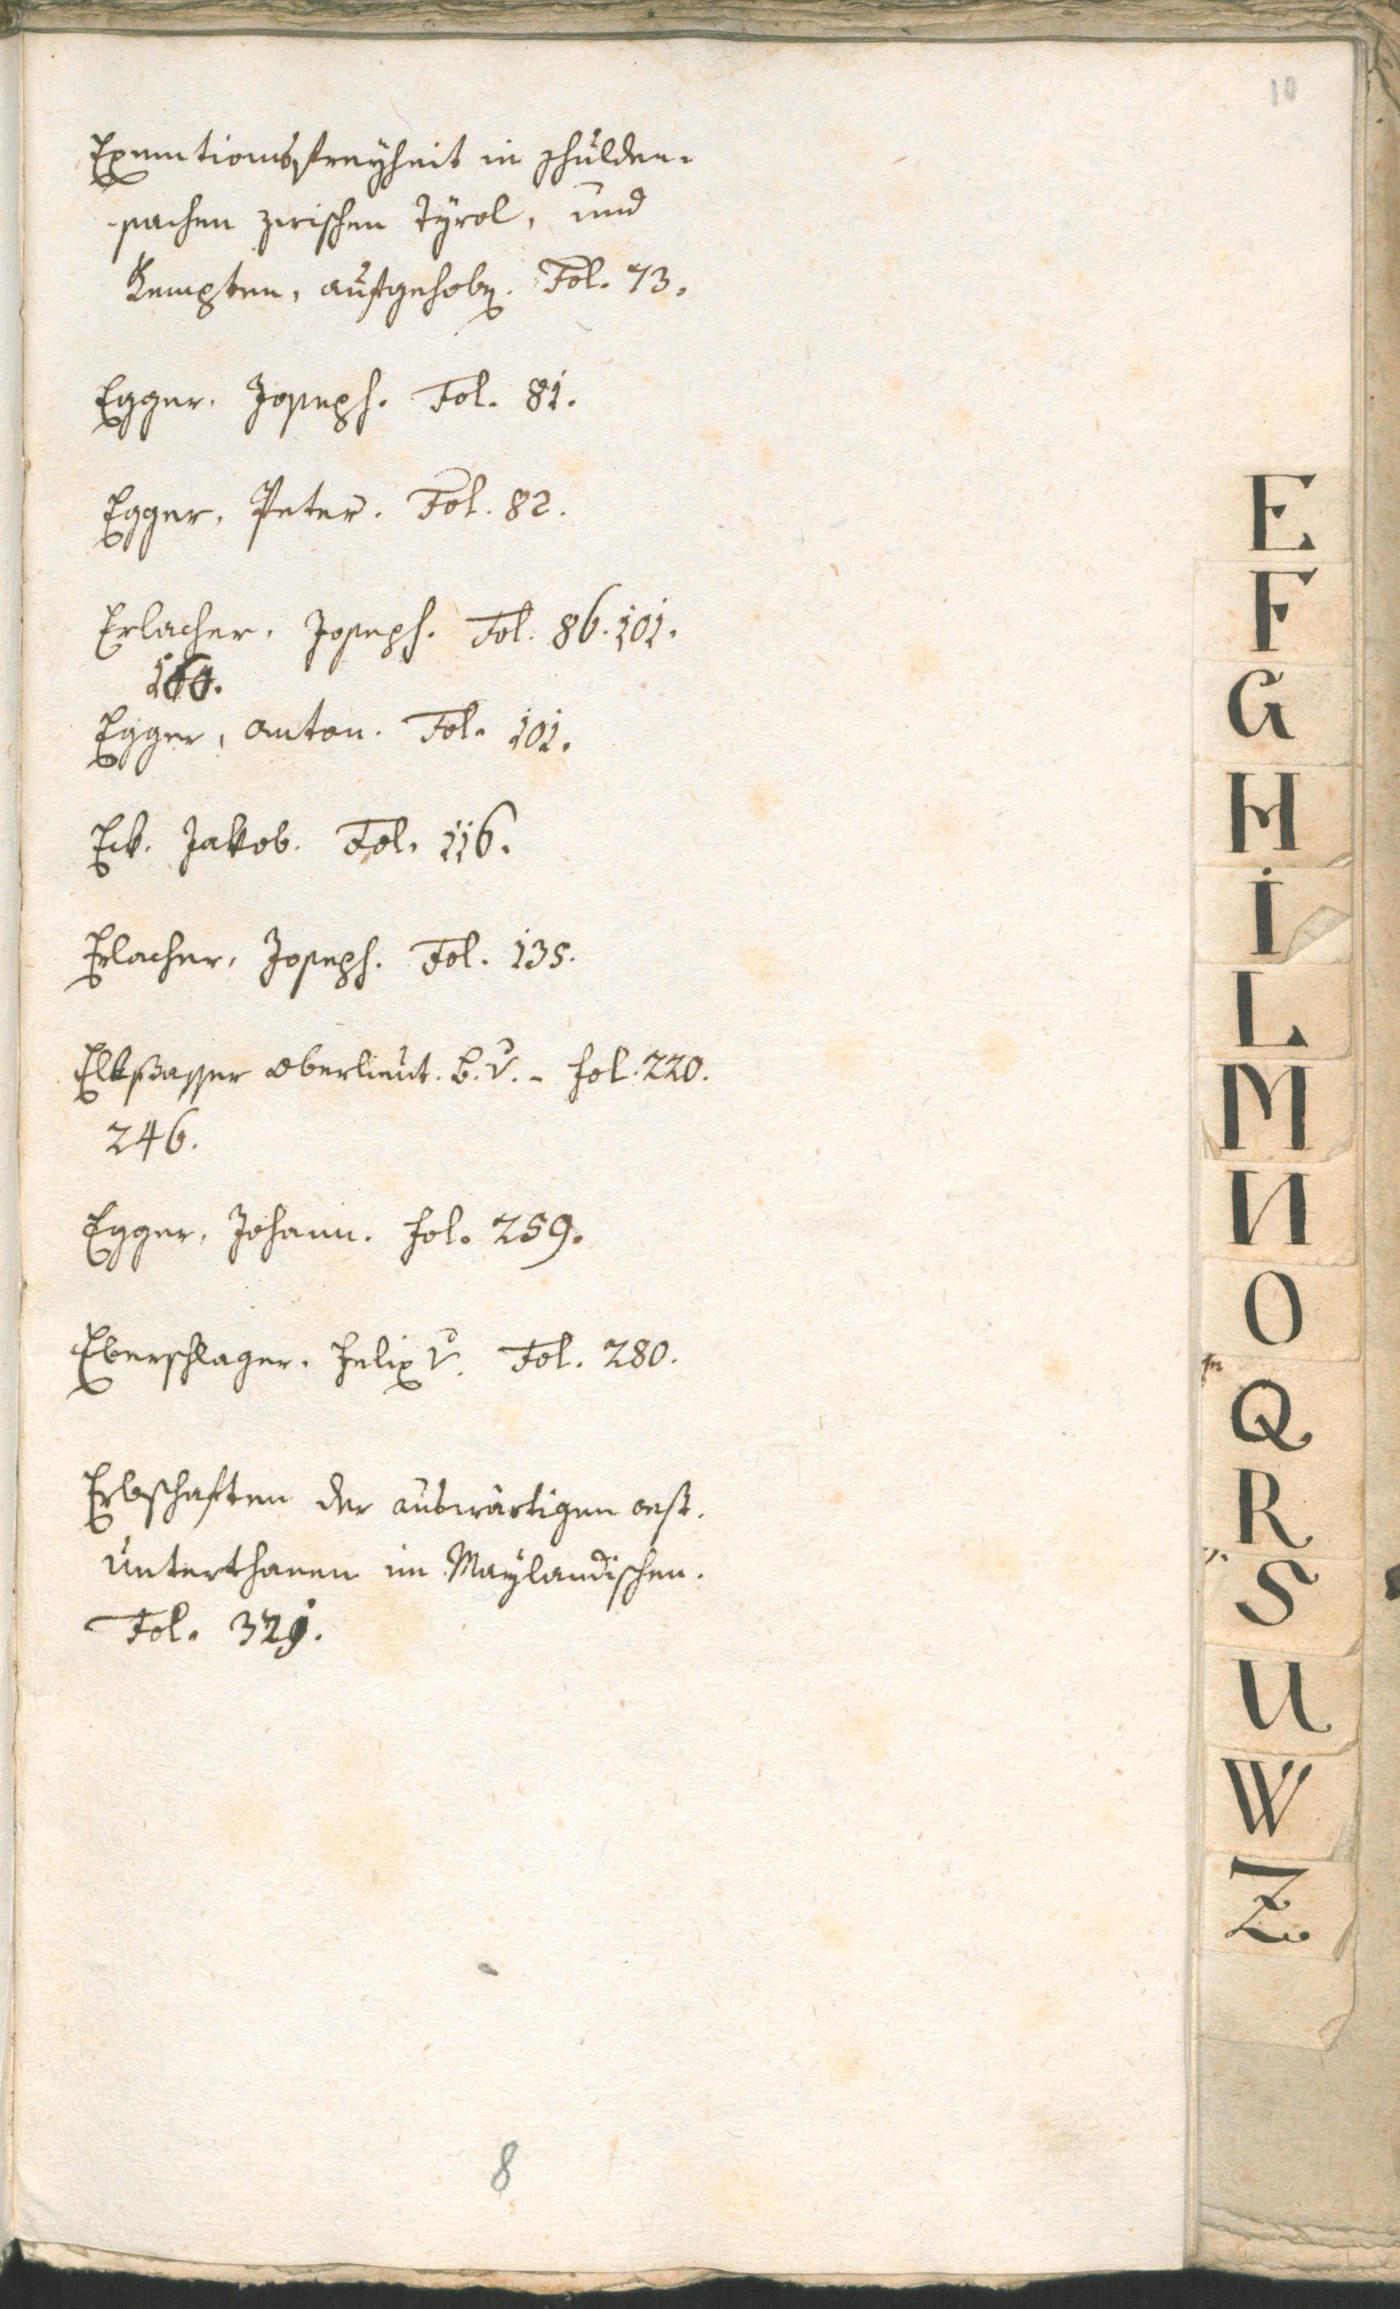 10
Exemtionsfreyheit in Schulden-
sachen zwischen Tÿrol, und
Kempten, aufgehoben. Fol. 73.
Egger. Joseph. Fol. 81.
Egger. Peter. Fol. 82.
Erlacher. Joseph. Fol. 86. 101.
Egger, Anton. Fol. 101.
Eck. Jakob. Fol. 116.
Erlacher. Joseph. Fol. 135.
Oberlieut. B. v. - fol. 220.
246.
Egger. Johann. fol. 259.
Eberschlager. Felix v. Fol. 280.
Erbschaften der auswärtigen oest.
Unterthanen im Mayländischen.
Fol. 321.
8
E
F
G
H
I
L
M
N
O
Q
R
S
U
W
Z